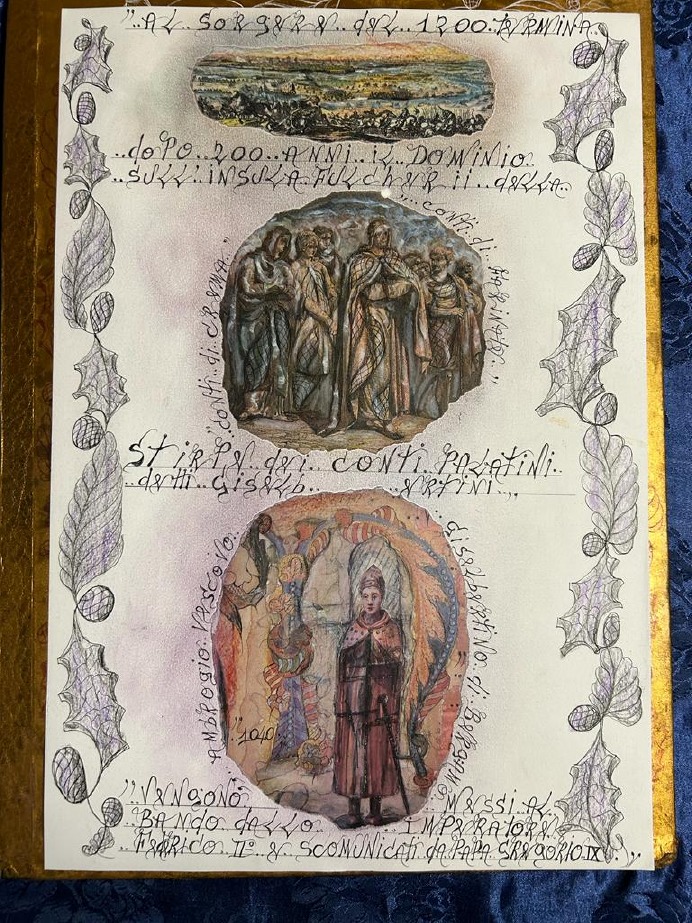 "AL SORGERE.. DEL.. 1200. TERMINA.
..dOPO..200..ANNI..IL..DOMINIO.
..SULL'INSULA.FULCHERII..dELLA..
"..CONTI.di.CREMA.."
"..CONTI.di.
STIRPE..dei..CONTI..PALATINI..
detti..GISELB........ERTINI..,,
AMBROGIO..VESCOVO..
Giselbertino.di.Bergamo
"..1040..
"VENGONO..........MESSI.AL.
BANDO.dALLO........IMPERATORE.
FEDERICO..II°..E..SCOMUNICATI.dA.PAPA.GREGORIO.IX."